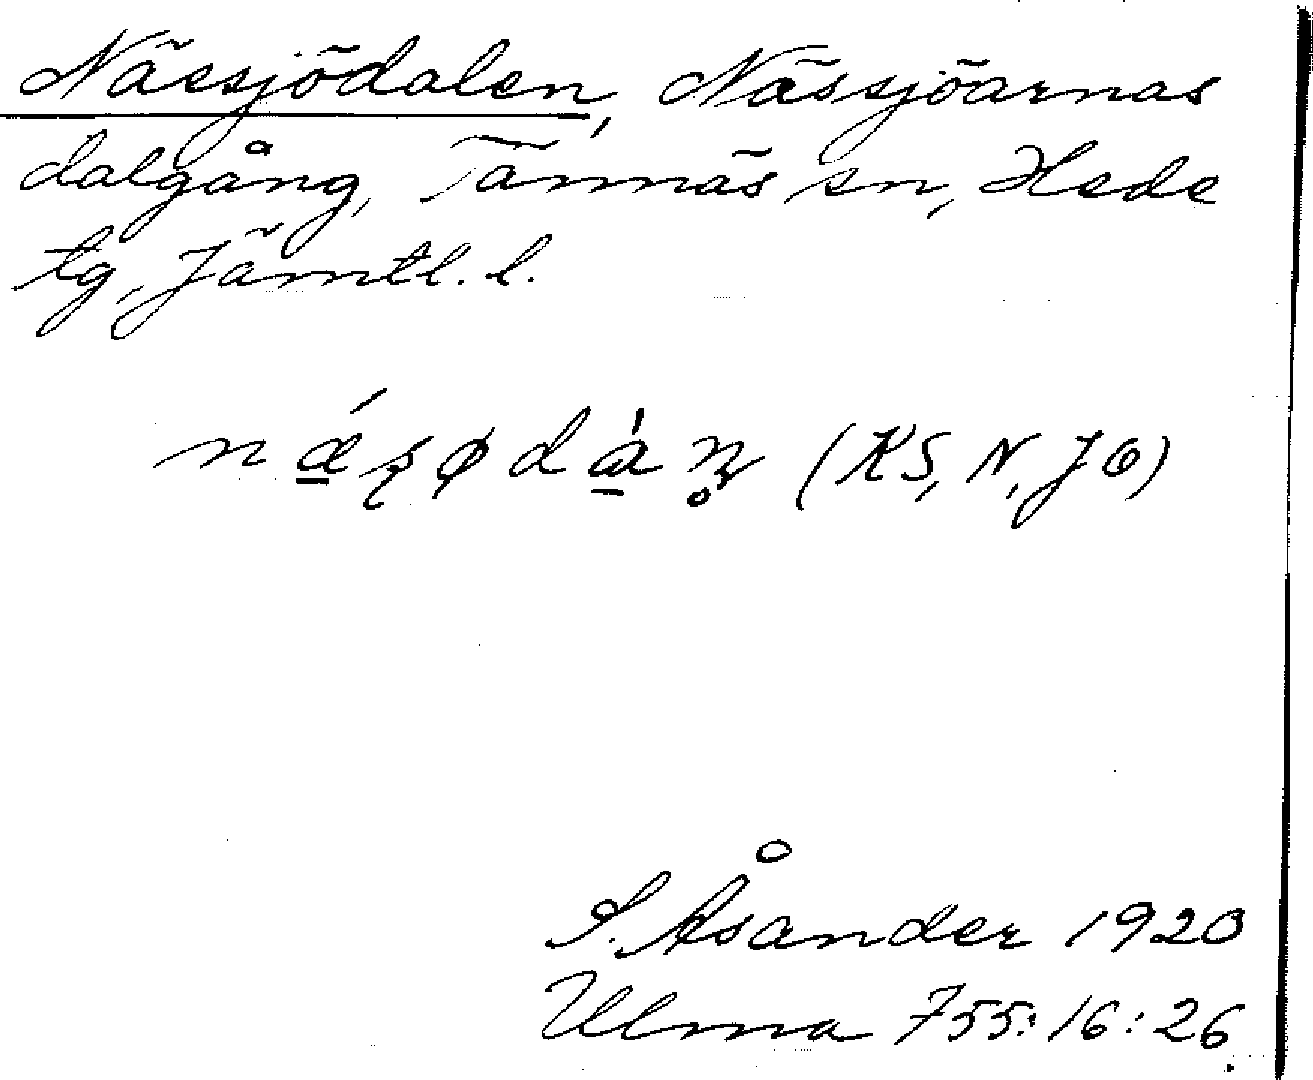 NäsSjödalen, Nässjöarnas
dalgång, Tännäs sn, Hede
tg, Jämtl. l.
(KS, N, JO)
S. Åsander 1920
Ulma 755:16:26